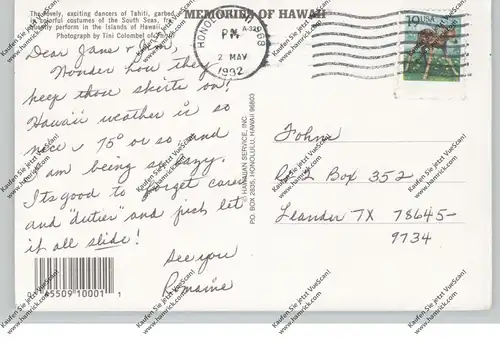 MEMORIES OF HAWAII
The lovely, exciting dancers of Tahiti, garbed
colorful costumes of the South Seas,
perform in the Islands of Hawaii.
Photograph by Tini Colombel of
HONOLULU
968
PM
2 MAY
1992
19 USA
Dear Jane &
Wonder how they
keep those skirts on!
Hawaii weather is so
nice 75° or so and
I am being so lazy.
Its good to forget cares
and "duties" and just let
it all slide!
See you
Romaine
Johns
Rt 2 Box 352
Leander TX 78645-
9734
© HAWAIIAN SERVICE, INC.
PO. BOX 2835, HONOLULU, HAWAII 96803
45509 10001 1
Kaufen Sie jetzt VueScan!
www.hamrick.com